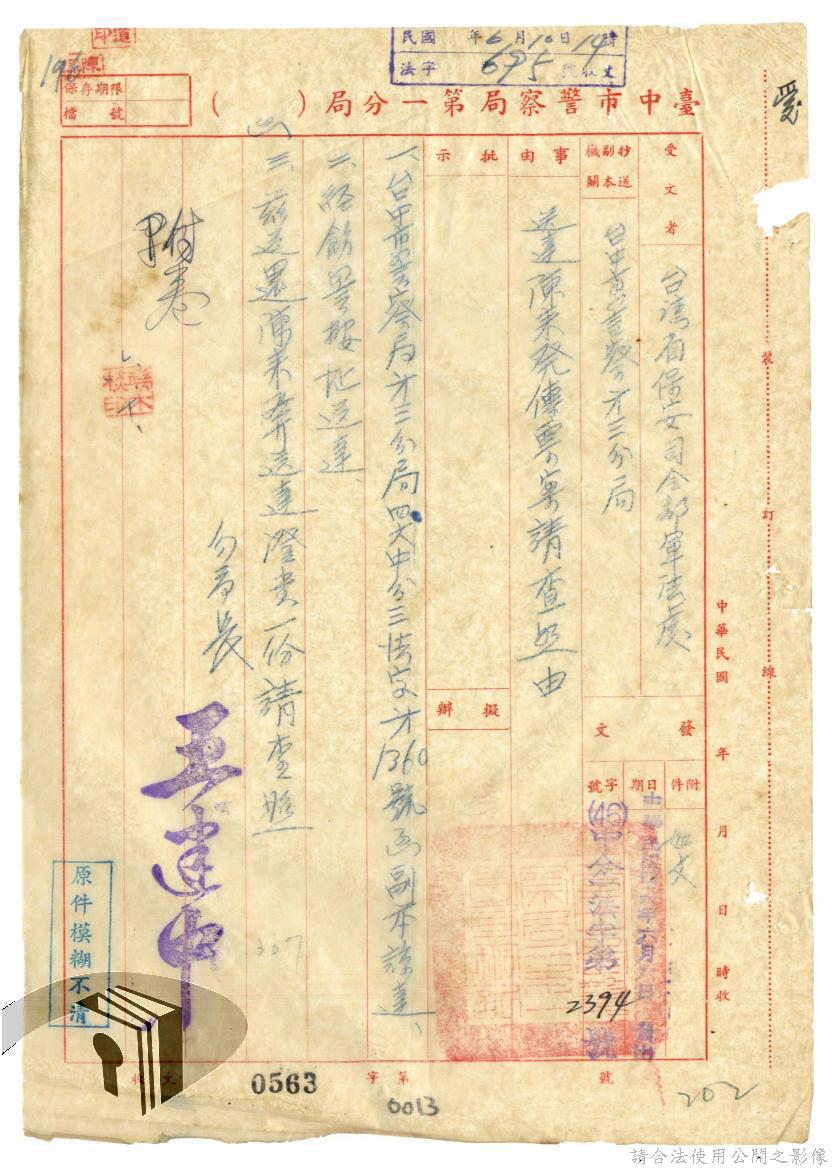 民國 年6月10日14時
法字 695號收文
保存期限
檔號
臺中市警察局第一分局( )
受文者
台灣省保安司令部軍法處
抄送副本機關
台中市警察局第三分局
事由
送達陳來發傳票案請查照由
批示
擬辦
發文
附件
如文
日期
中華民國四六年六月 日 發出
字號
(46)中分一法字第2394號
一、台中市警察局第三分局四六中分三法字第1360號函副本諒達、
二、經飭警按址送達、
三、茲送還陳來發送達證書一份請查照
分局長
王建中
附卷
中華民國 年 月 日 時收
裝訂線
原件模糊不清
收文 字第 號
0563
0013
202
307
請合法使用公開之影像